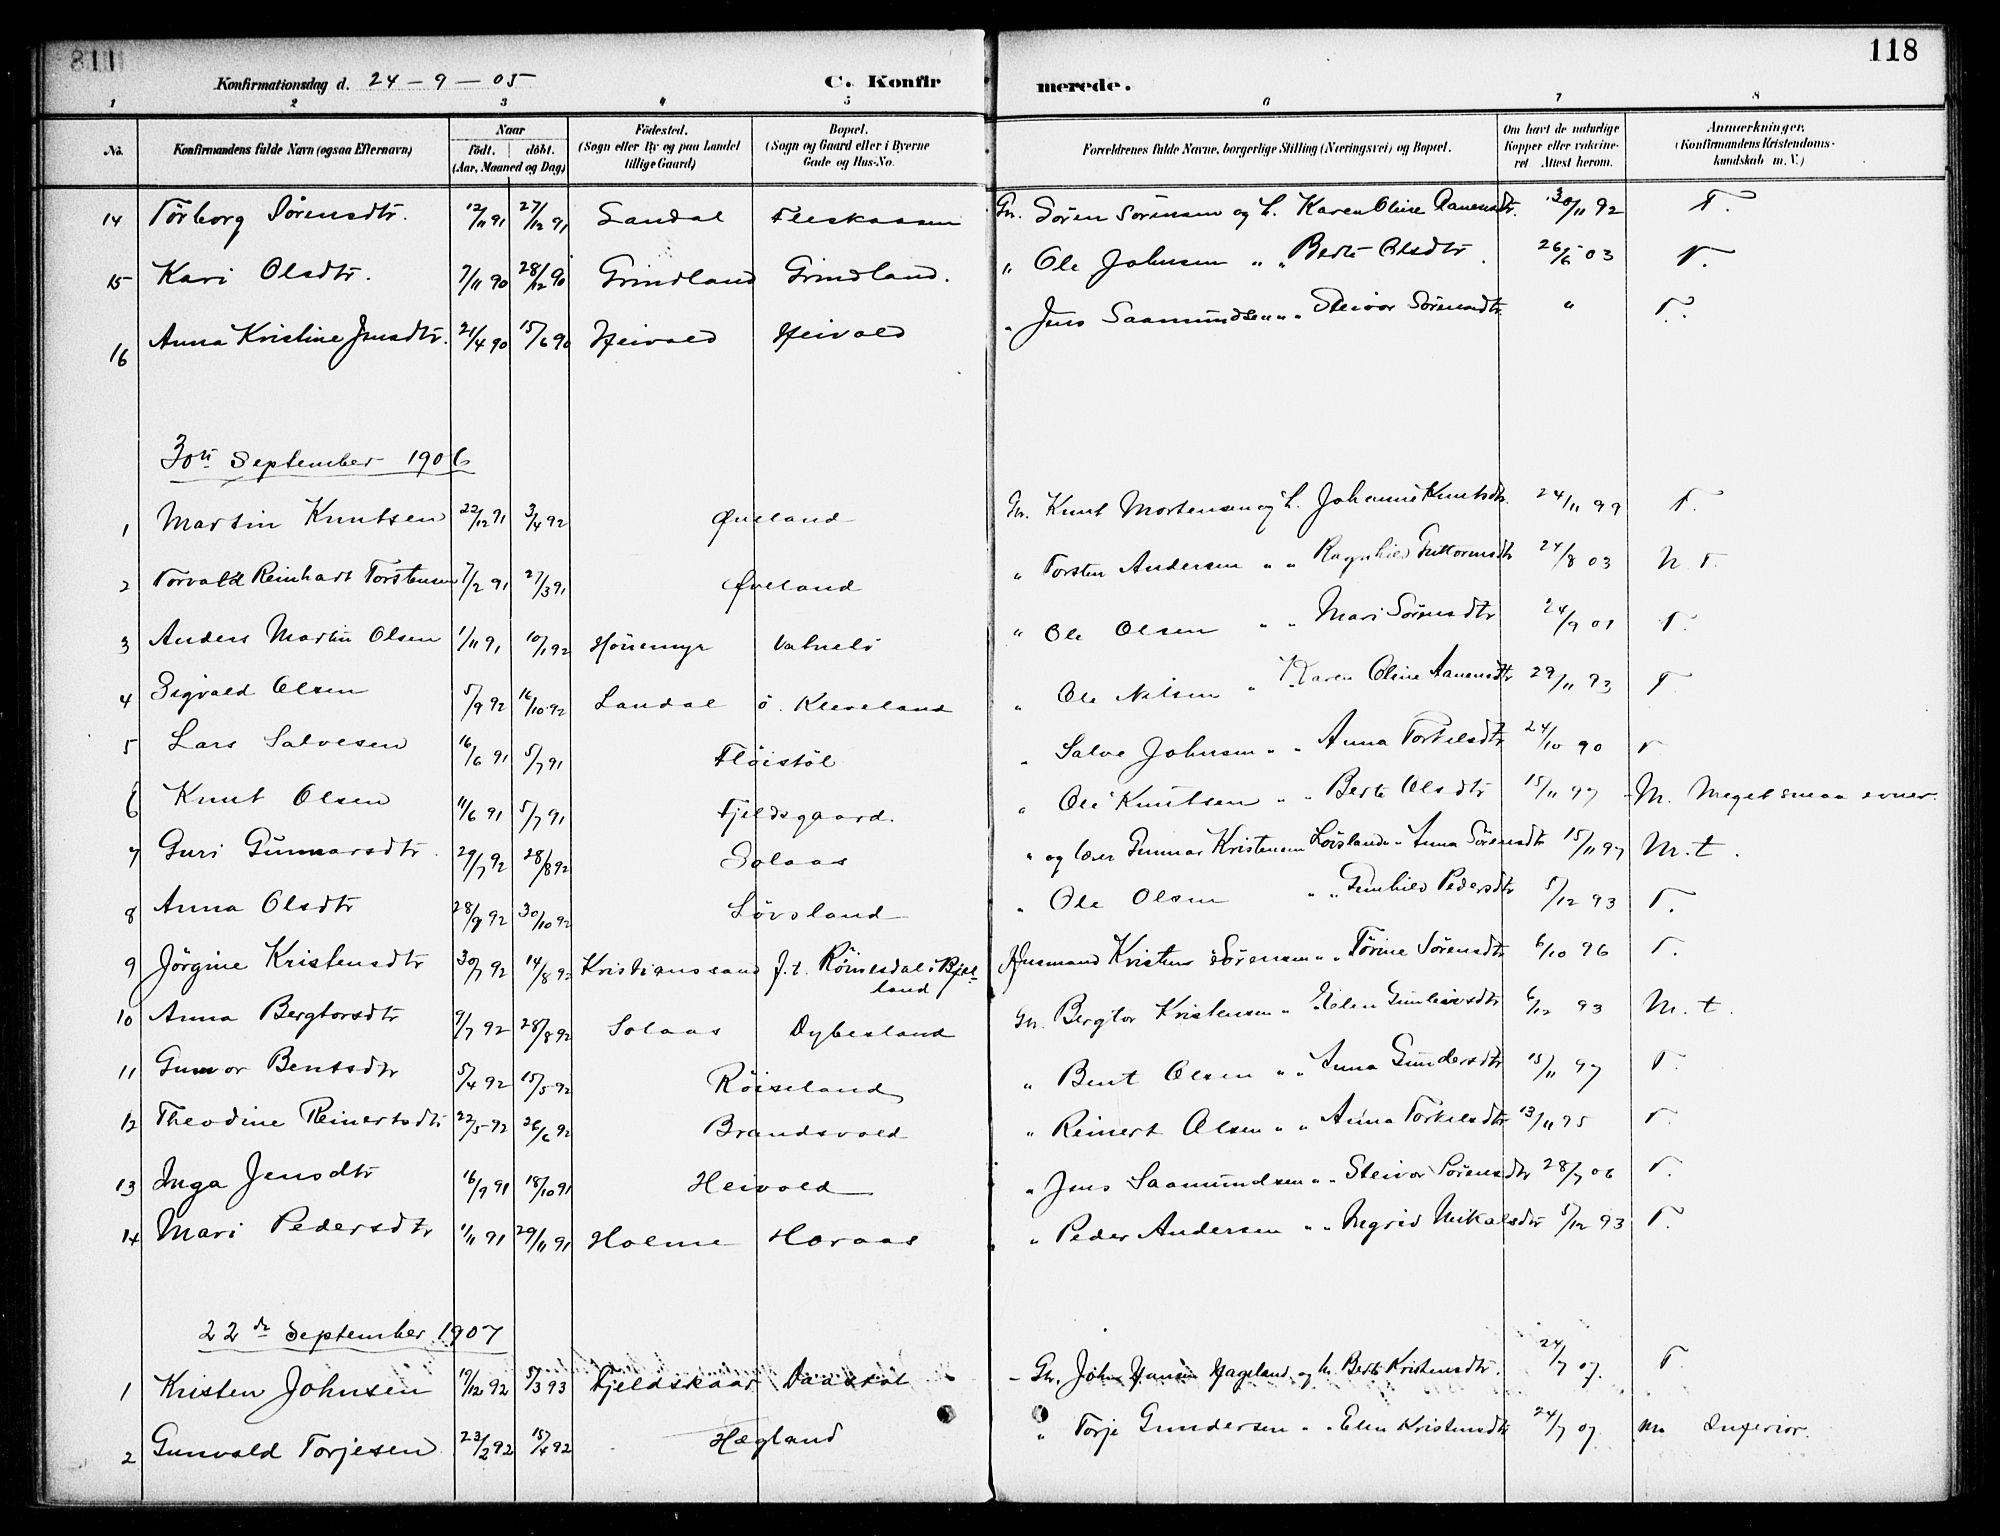 118
Konfirmationsdag d. 24 - 9 - 05 C. Konfirmerede.
1 2 3 4 5 6 7 8
No. Konfirmandens fulde Navn (ogsaa Efternavn) Naar Födt. döbt. (Aar, Maaned og Dag) Födested. (Sogn eller By og paa Landet tillige Gaard) Bopæl. (Sogn og Gaard eller i Byerne Gade og Hus-No. Forældrenes fulde Navne, borgerlige Stilling (Næringsvei) og Bopæl. Om havt de naturlige Kopper eller vakcineret Attest herom. Anmærkninger, (Konfirmandens Kristendomskundskab m. V.)
14 Törborg Sörensdtr. 12/11 91 27/12 91 Landal Fleskaasen Gr. Sören Sörensen og h. Karen Oline Aanensdtr. 30/11 92 T.
15 Kari Olsdtr. 7/11 90 28/12 90 Grindland Grindland. " Ole Johnsen " " Berte Olsdtr. 26/6 03 T.
16 Anna Kristine Jensdtr. 21/4 90 15/6 90 Heivold Heivold " Jens Saamundsen " " Steivor Sörensdtr " T.
30te September 1906
1 Martin Knutsen 22/12 91 3/4 92 Øveland Gr. Knut Mortensen og h. Johanne Knutsdtr. 24/11 99 T.
2 Torvald Reinhart Torstensen 7/2 91 27/3 91 Øveland " Torsten Andersen " " Ragnhild Guttormsdtr 24/8 03 N. T.
3 Anders Martin Olsen 1/11 91 10/1 92 Hönemyr Vatneli " Ole Olsen " " Mari Sörensdtr 24/9 01 T.
4 Sigvald Olsen 5/9 92 16/10 92 Landal ö. Kleveland " Ole Nilsen " " Karen Oline Aanensdtr 29/11 93 T
5 Lars Salvesen 16/6 91 5/7 91 Flöistöl " Salve Johnsen " " Anna Torkelsdtr 24/10 90 T
6 Knut Olsen 11/6 91 5/7 91 Fjeldsgaard. " Ole Knutsen " " Berte Olsdtr 15/11 97 M. Meget smaa evner.
7 Guri Gunnarsdtr. 29/7 92 28/8 92 Solaas " og lærer Gunnar Kristensen Lövsland " " Anna Sörensdtr 15/11 97 M. t.
8 Anna Olsdtr 28/9 92 30/10 92 Lövsland " Ole Olsen " " Gunhild Pedersdtr 5/12 93 T.
9 Jörgine Kristensdtr 30/7 92 14/8 92 Kristianssand f. t. Röinesdal i Bjelland Husmand Kristen Sörensen " " Törine Sörensdtr 6/10 96 T.
10 Anna Bergtorsdtr 9/7 92 28/8 92 Solaas Dybesland Gr. Bergtor Kristensen " Elen Gunleivsdtr 6/12 93 M. t.
11 Gunvor Bentsdtr 5/4 92 15/5 92 Röiseland " Bent Olsen " " Anna Gundersdtr 15/11 97 T.
12 Theodine Reinertsdtr 22/5 92 26/6 92 Brandsvold " Reinert Olsen " " Anna Torkelsdtr 13/11 95 T.
13 Inga Jensdtr 16/9 91 18/10 91 Heivold " Jens Saamundsen " " Steivor Sörensdtr 28/7 06 T.
14 Mari Pedersdtr 1/11 91 29/11 91 Holme Horaas " Peder Andersen " " Ingrid Nikolsdtr 5/12 93 T.
22de September 1907
1 Kristen Johnsen 19/12 92 5/3 93 Fjeldskaar Daastöl Gr. John Hansen Hageland og h. Berte Kristensdtr. 24/7 07. T.
2 Gunvald Torjesen 23/2 92 15/4 92 Hægland " Torje Gundersen " " Elen Kristensdtr 24/7 07 M Inferior.